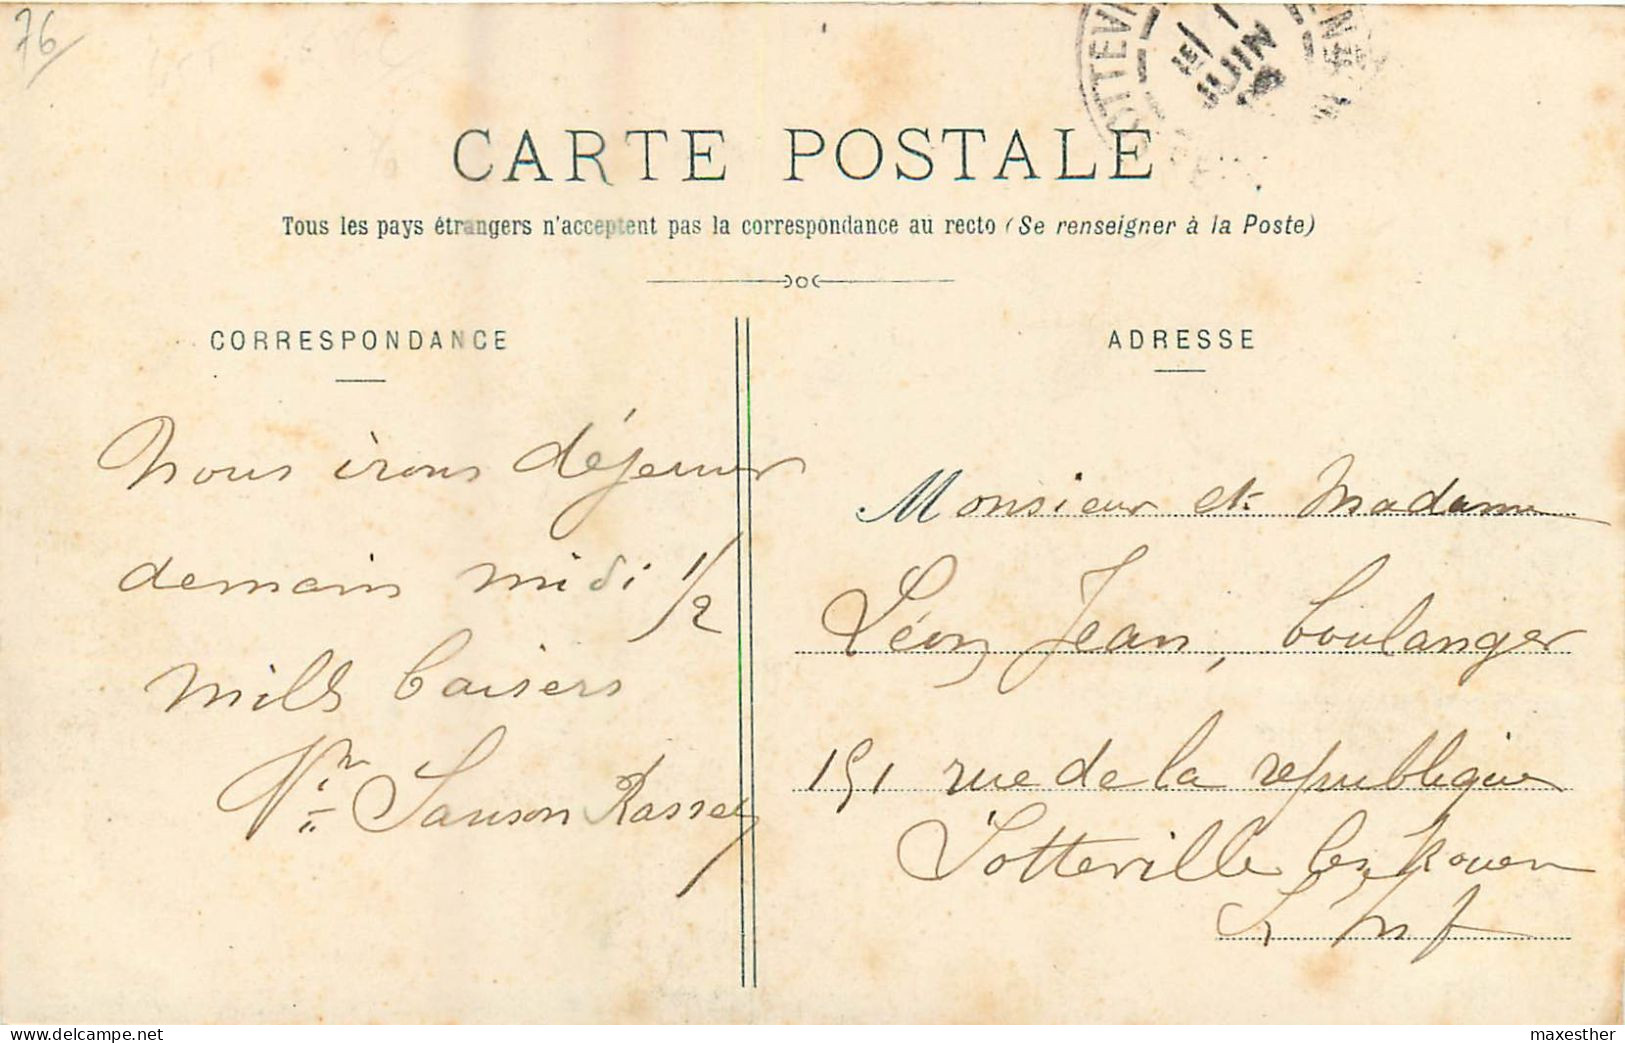 76
OTTEVI
1
JUIN
CARTE POSTALE
Tous les pays étrangers n'acceptent pas la correspondance au recto (Se renseigner à la Poste)
CORRESPONDANCE
ADRESSE
Nous irons déjeuner
demain midi 1/2
mille baisers
Sanson
Monsieur et Madame
Léon Jean, boulanger
151 rue de la republique
Sotteville lez Rouen
S. Inf
delcampe.net
maxesther